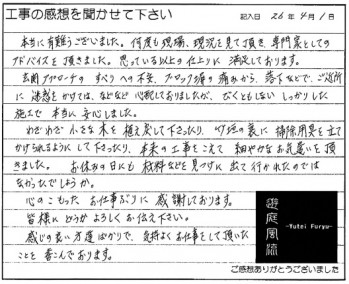 工事の感想を聞かせて下さい
記入日 26年4月1日
本当に有難うございました。何度も現場、現況を見て頂き、専門家としての
アドバイスを頂きました。思っている以上の仕上りに満足しております。
玄関アプローチのすべりへの不安、ブロック塀の痛みから、巻くなどで、ご近所
に迷惑をかけては、などなど心配しておりましたが、びくともしないしっかりした
施工で本当に安心しました。
わざわざ小さな木を植え戻して下さったり、竹垣の裏に掃除用具を立て
かけられるようにして下さったり、本来の工事をこえて細やかなお気遣いを頂
きました。お休みの日にも材料などを見つけに出て行かれたのでは
なかったでしょうか。
心のこもったお仕事ぶりに感謝しております。
皆様にどうかよろしくお伝え下さい。
感じの良い方達ばかりで、気持よくお仕事をして頂いた
ことを喜んでおります。
遊庭風流
-Yutei Furyu-
ご感想ありがとうございました